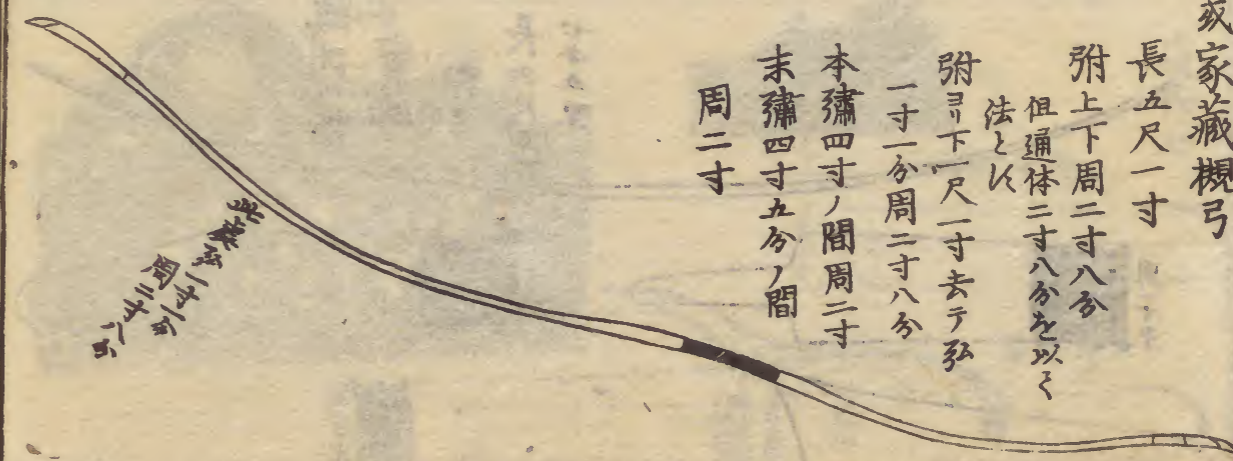 或家蔵槻弓
長五尺一寸
弣上下周二寸八分
但通体二寸八分を以て
法とス
弣ヨリ下一尺一寸去テ弘
一寸一分周二寸八分
本彇四寸ノ間周二寸
末彇四寸五分ノ間
周二寸
弘一寸一分
周二寸八分